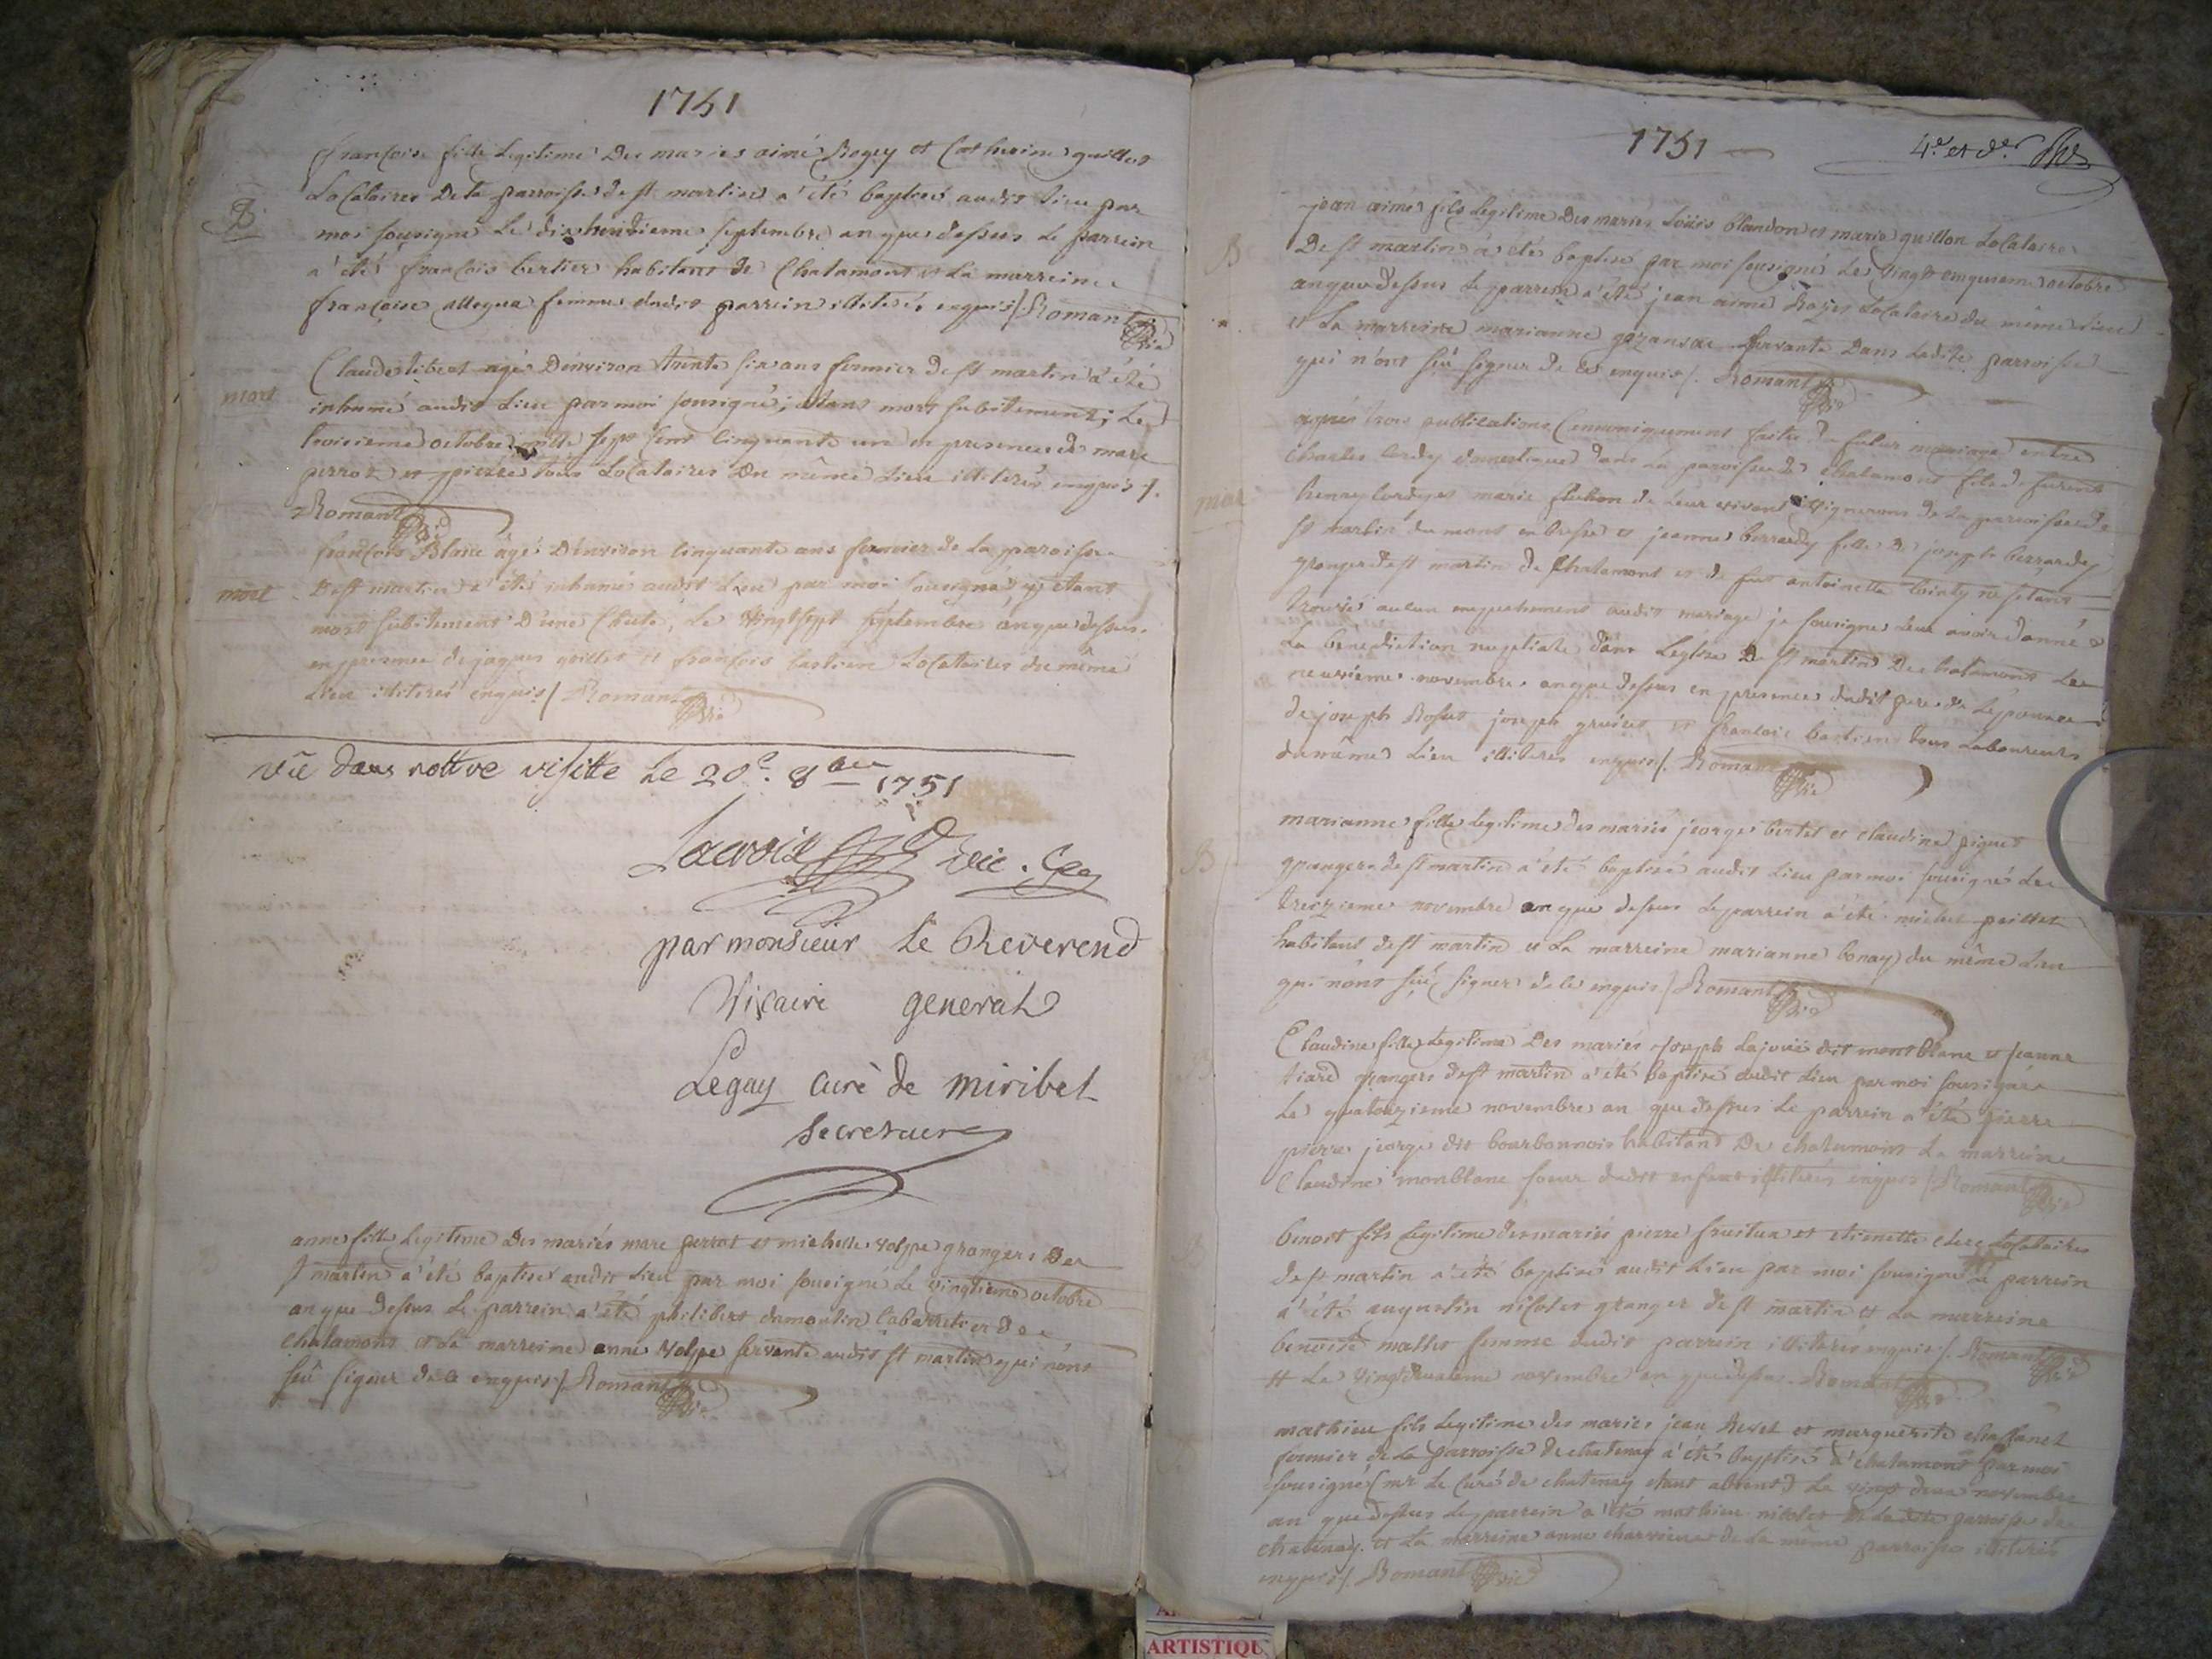 1751
françoise fille Legitime Des mariés aimé Rogey et Catherine guillet
Localaires De la parroisse de st martin a été baptisé audit Lieu par
B
moi sousigné Le dixhuitieme septembre an que dessus Le parrein
a été françois bertier habitant de Chatamont et La marreine
françoise allegua femme dudit parrein illiterés enquis /. Romant
vic
Claude libert agé D'environ trente six ans fermier de st martin a été
mort
inhumé audit Lieu par moi sousigné; étant mort subitement; Le
troisieme octobre mille sept sent Cinquante un en presence de marc
perrot et pierre tous Localaires Du même Lieu illiterés enquis /.
Romant
vic
françois Blanc agé D'environ Cinquante ans fermier de La paroisse
mort
De st martin a été inhumé audit Lieu par moi sousigné y étant
mort subitement D'une Chute, Le Vingt sept septembre an que dessus.
en presence de jaques guillet et françois bastien Localaires du même
Lieu illiterés enquis / Romant
vic
vû dans nottre visitte Le 20e. 8bre 1751
Lacroix vic. G
par monsieur Le Reverend
Vicaire general
Legay curè de miribel
secretaire
anne fille Legitime Des mariés marc perrot et michelle volpe grangers De
st martin a été baptisé audit Lieu par moi sousigné Le vingtieme octobre
an que dessus Le parrein a été philibert damoulin Cabarretier De
chatamont et La marreine anne volpe servante audit st martin qui nont
sçû signer de ce enquis / Romant
vic
1751
4e. et der.
jean aimé fils Legitime Des mariés Loüis blandon et marie guillon Localaires
B
De st martin a été baptisé par moi sousigné Le vingt cinquieme octobre
an que dessus Le parrein a été jean aimé Rogey Localaire du même Lieu
et La marreine marianne servante Dans Ladite parroisse
qui n'ont sçû signer de ce enquis /. Romant
vic
après trois publications Cannoniquement faites du futur mariage entre
Charles Cordy domestique dans La paroisse de Chatamont fils de furent
mar
henry Cordy et marie de Leur vivant Vignerons de La parroisse de
st martin du mont en bresse et jeanne berrardy fille de joseph berrardy
granger de st martin de Chatamont et de feue antoinette Cointy ne setant
trouvé aucun empechement audit mariage je sousigné Leur avoir donné
La bénédiction nuptiale dans L'eglise De st martin De Chatamont Le
neuvieme novembre an que dessus en presence dudit pere de L'epouse
de joseph Rosset joseph et françois bastien tous Laboureurs
du même Lieu illiterés enquis /. Romant
vic
marianne fille Legitime des mariés jeorge bertet et claudine pignet
B
grangers de st martin a été baptisé audit Lieu par moi sousigné Le
treizieme novembre an que dessus Le parrein a été michel paillet
habitant de st martin et La marreine marianne bonay du même Lieu
qui n'ont sçû signer de ce enquis / Romant
vic
Claudine fille Legitime Des mariés joseph Lajoie dit montblanc et jeanne
B
tiard grangers de st martin a été baptisé audit Lieu par moi sousigné
Le quatorzieme novembre an que dessus Le parrein a été pierre
pierre jeorge dit bourbonnois habitant De chatamont La marreine
Claudine monblanc soeur dudit enfant illiterés enquis / Romant
vic
benoit fils Legitime des mariés pierre fruitua et etiennette clerc Localaires
B
de st martin a été baptisé audit Lieu par moi sousigné # Le parrein
a été augustin nicolet granger de st martin et La marreine
benoite mallet femme dudit parrein illiterés enquis /. Romant
vic
# Le Vingtdeuxieme novembre an que dessus. Romant
vic
mathieu fils Legitime des mariés jean Revel et marguerite chassanel
fermier de La parroisse de chatenay a été baptisé a chatamont par moi
sousigné (mr Le Curé de chatenay étant absent) Le vingt deux novembre
an que dessus Le parrein a été mathieu nicolet de Ladite parroisse de
chatenay et La marreine anne charvieux de La même parroisse illiterés
enquis /. Romant
vic
ARTISTIQU